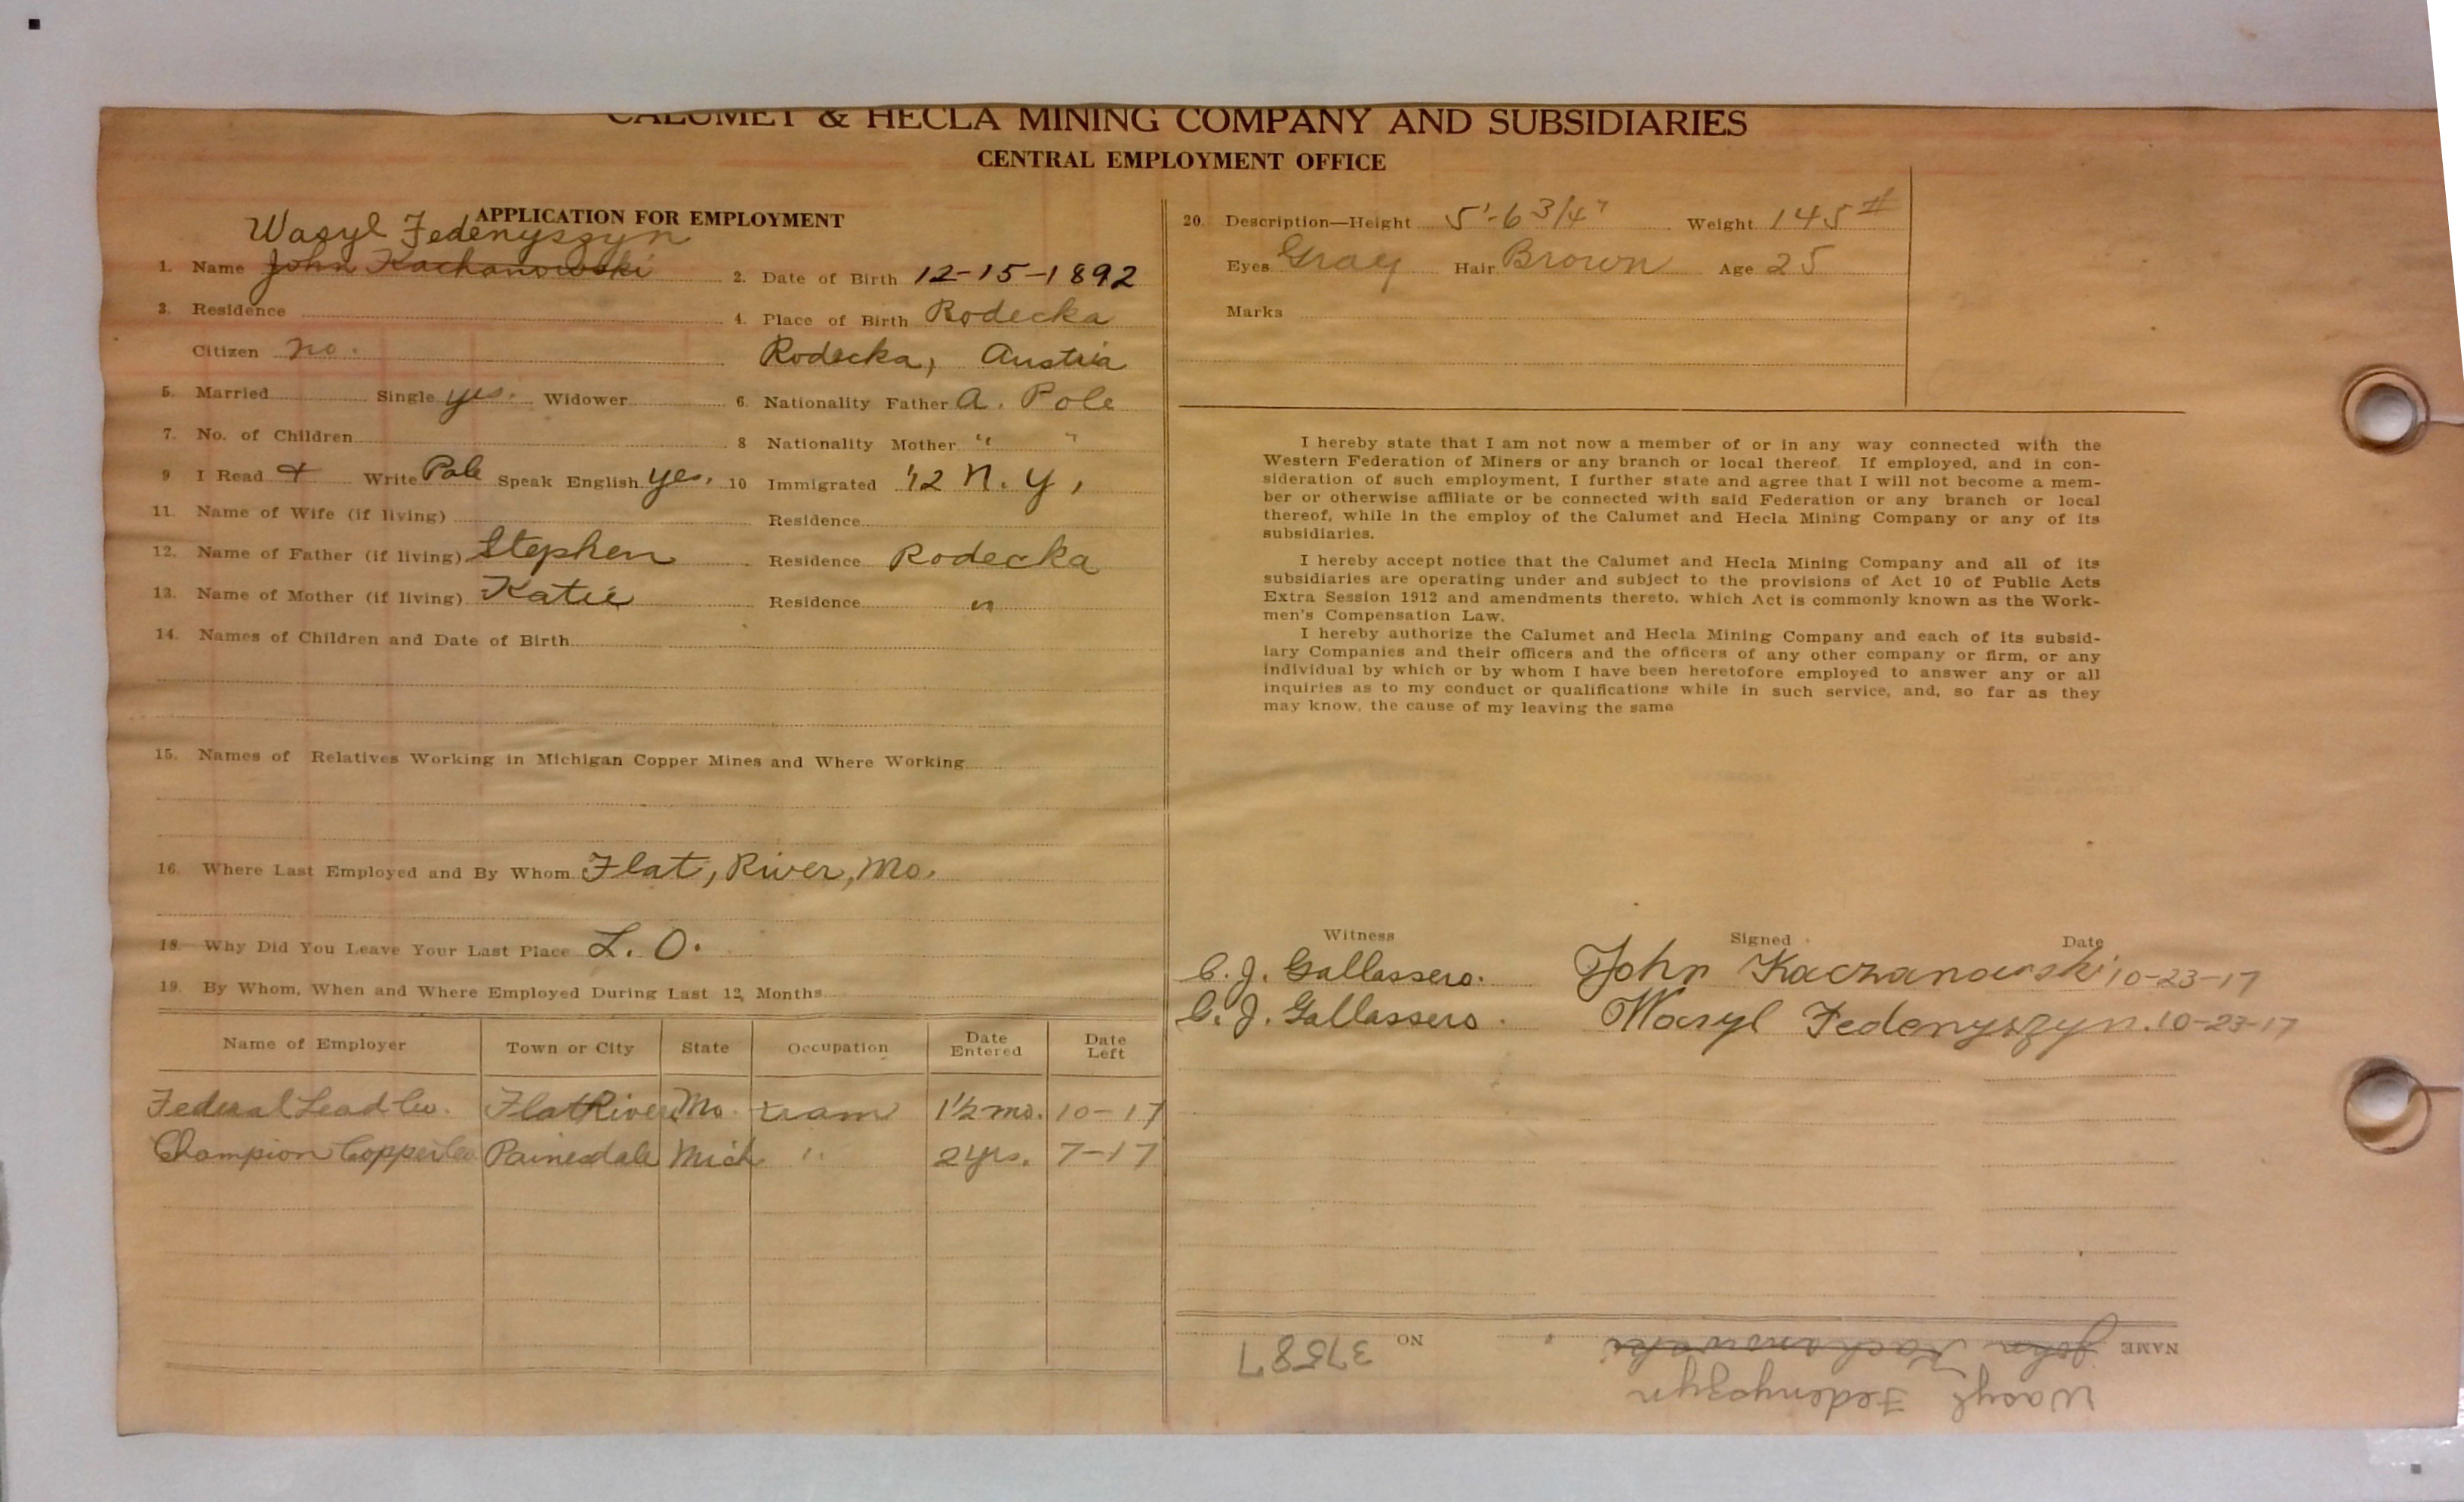 CALUMET & HECLA MINING COMPANY AND SUBSIDIARIES
CENTRAL EMPLOYMENT OFFICE
APPLICATION FOR EMPLOYMENT
Wasyl Fedenyszyn
1. Name John Kachanowski 2. Date of Birth 12-15-1892
3. Residence 4. Place of Birth Rodecka
Citizen no. Rodecka, Austria
5. Married Single yes. Widower 6. Nationality Father A. Pole
7. No. of Children 8 Nationality Mother " "
9 I Read + Write Pole Speak English yes, 10 Immigrated '12 N.Y,
11. Name of Wife (if living) Residence
12. Name of Father (if living) Stephen Residence Rodecka
13. Name of Mother (if living) Katie Residence "
14. Names of Children and Date of Birth
15. Names of Relatives Working in Michigan Copper Mines and Where Working
16. Where Last Employed and By Whom Flat, River, Mo.
18. Why Did You Leave Your Last Place L. O.
19. By Whom, When and Where Employed During Last 12 Months
Name of Employer Town or City State Occupation Date Entered Date Left
Federal Lead Co. Flat River Mo. tram 1½ mo. 10-17
Champion Copper Co Painesdale Mich " 2 yrs. 7-17
20. Description—Height 5'-6 3/4" Weight 145#
Eyes Gray Hair Brown Age 25
Marks
I hereby state that I am not now a member of or in any way connected with the
Western Federation of Miners or any branch or local thereof. If employed, and in con-
sideration of such employment, I further state and agree that I will not become a mem-
ber or otherwise affiliate or be connected with said Federation or any branch or local
thereof, while in the employ of the Calumet and Hecla Mining Company or any of its
subsidiaries.
I hereby accept notice that the Calumet and Hecla Mining Company and all of its
subsidiaries are operating under and subject to the provisions of Act 10 of Public Acts
Extra Session 1912 and amendments thereto, which Act is commonly known as the Work-
men's Compensation Law.
I hereby authorize the Calumet and Hecla Mining Company and each of its subsid-
iary Companies and their officers and the officers of any other company or firm, or any
individual by which or by whom I have been heretofore employed to answer any or all
inquiries as to my conduct or qualifications while in such service, and, so far as they
may know, the cause of my leaving the same
Witness Signed Date
C. J. Gallassero. John Kaczanowski 10-23-17
C. J. Gallassero. Wasyl Fedenyszyn. 10-23-17
NAME John Kachanowski NO 37587
Wasyl Fedenyszyn